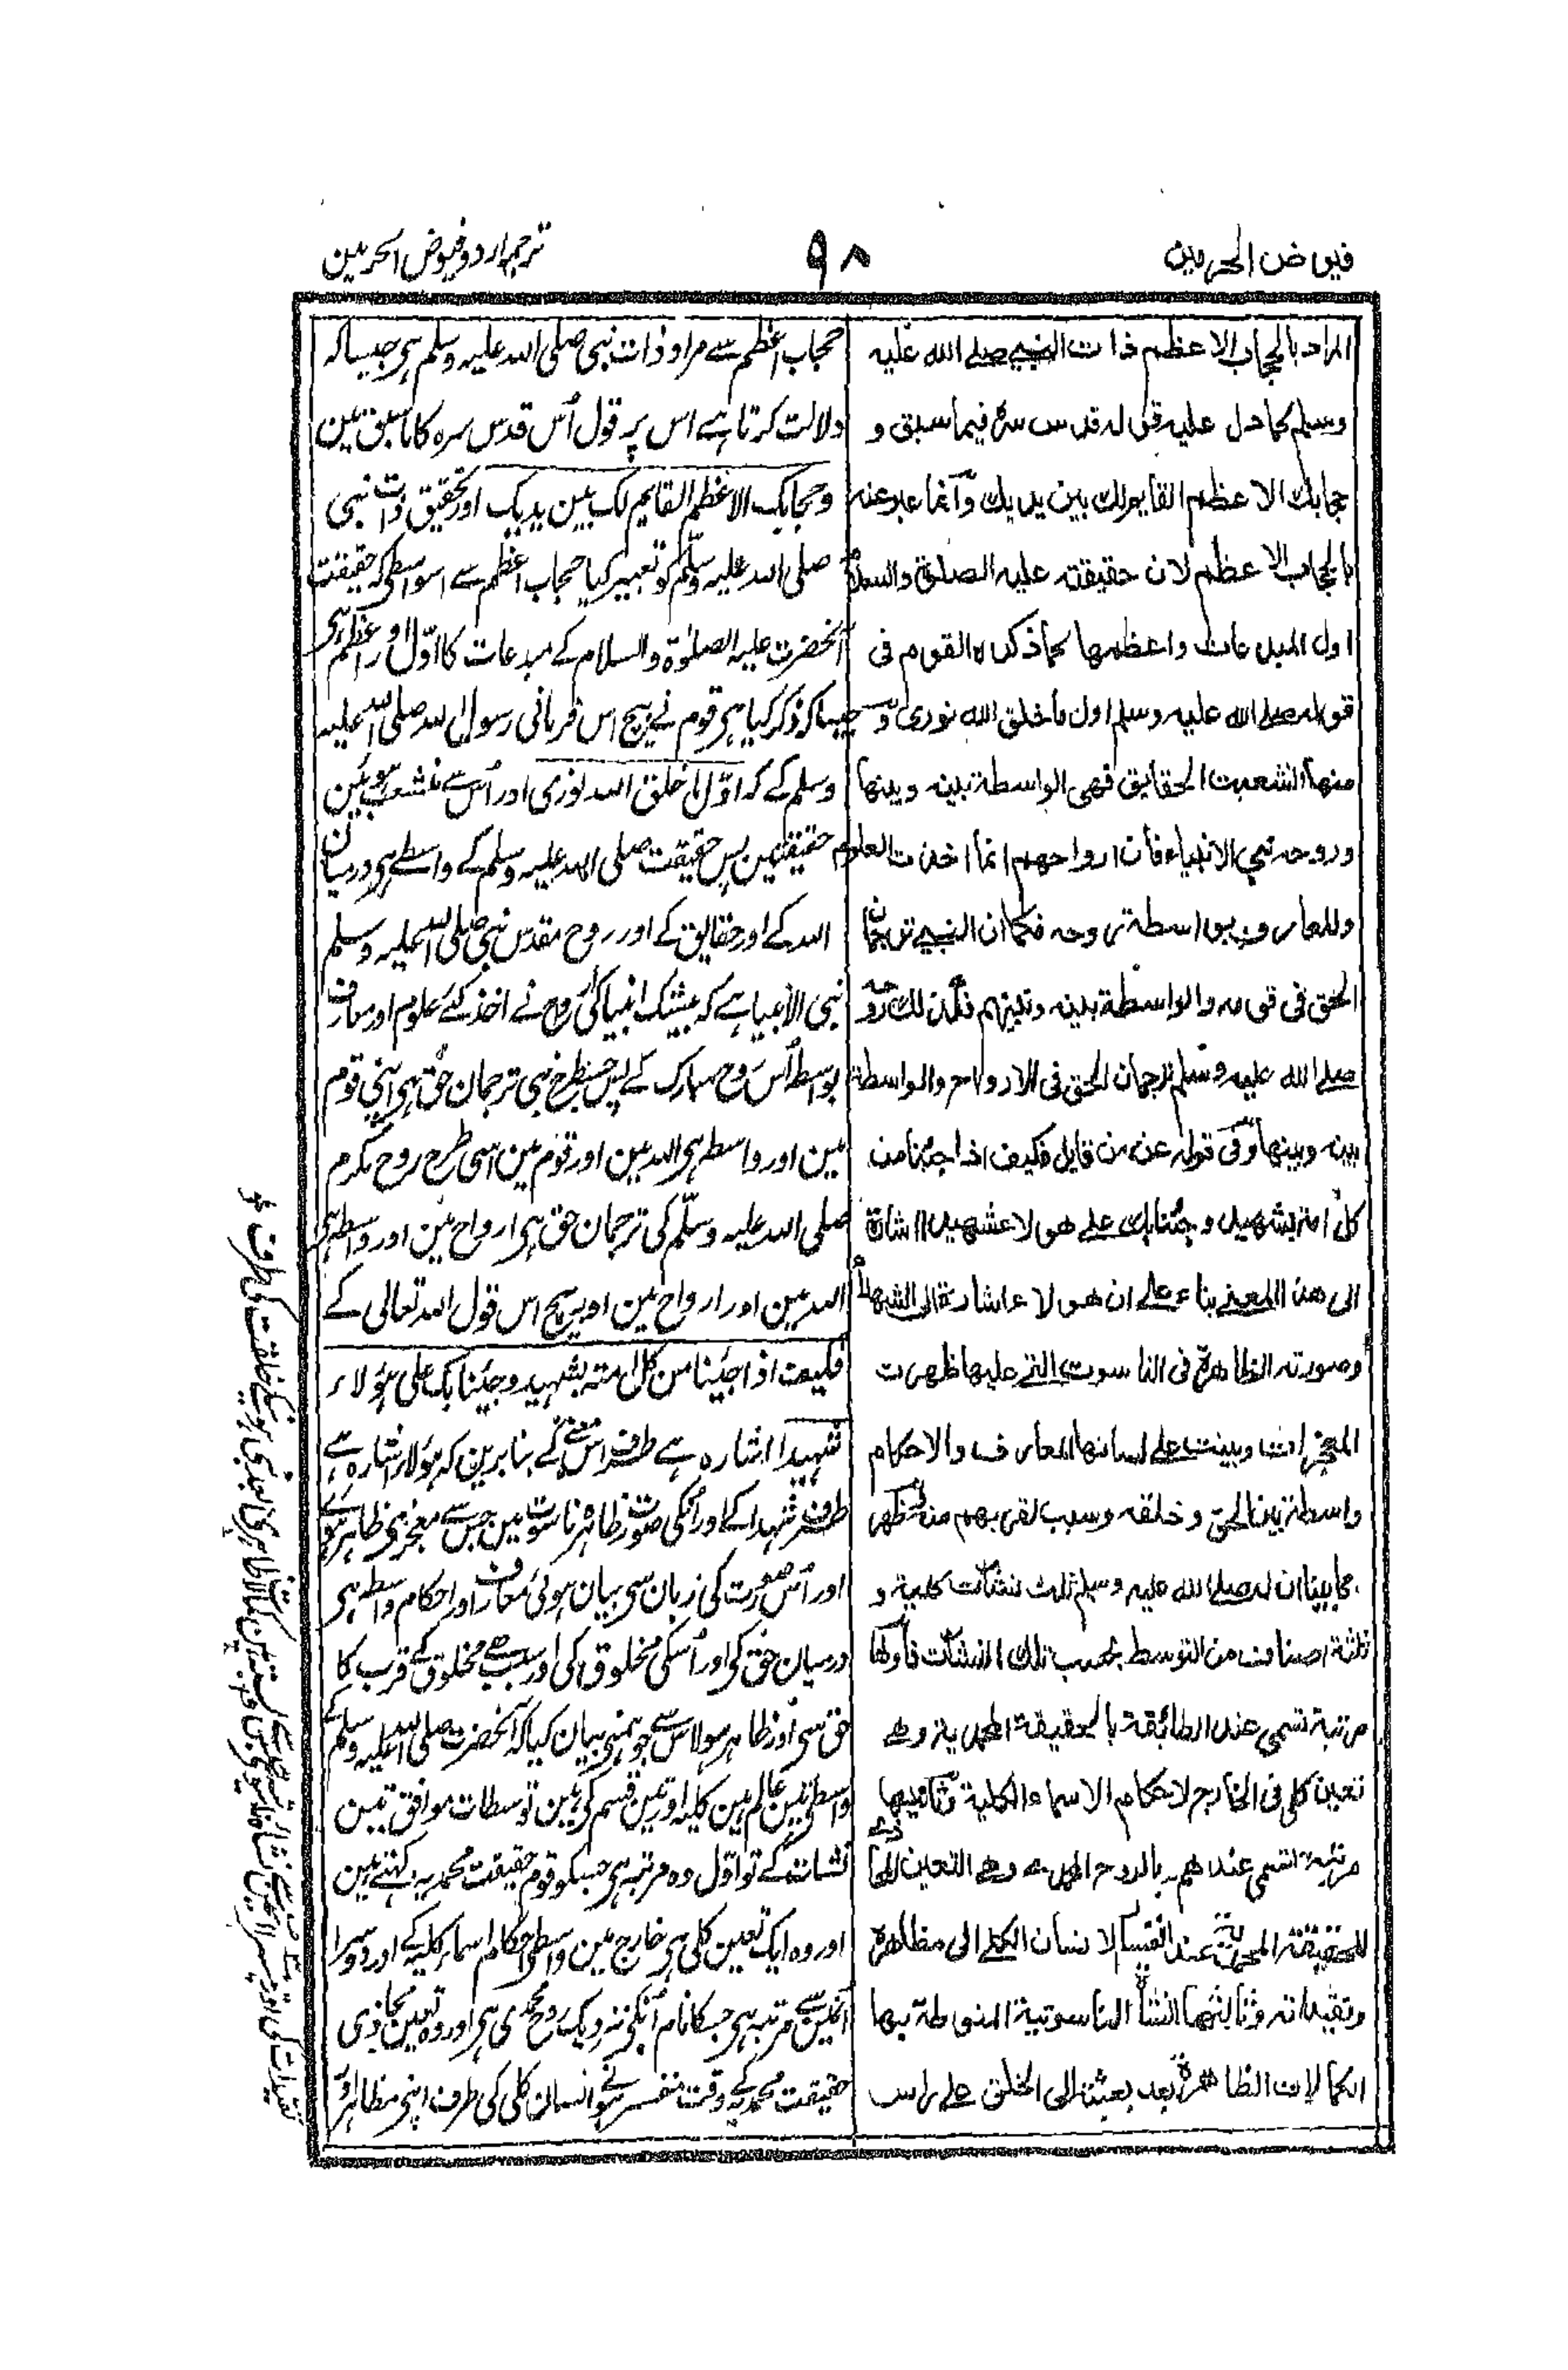 فیوض الحرمین
٩٨
ترجمہ اردو فیوض الحرمین
المراد بالحجاب الاعظم ذات النبی صلے الله علیه
وسلم کما دل علیه قوله قدس سره فیما سبق و
حجابك الاعظم القایم لك بین یدیك وانما عبر عنه
بالحجاب الاعظم لان حقیقته علیه الصلوة والسلام
اول المبدعات واعظمها کما ذکره القوم فی
قوله صلے الله علیه وسلم اول ما خلق الله نوری و
منها انشعبت الحقایق فهی الواسطة بینه وبینها
وروحه نبی الانبیاء فان ارواحهم انما اخذت العلوم
والمعارف بواسطة روحه فکما ان النبی ترجمان
الحق فی قومه والواسطة بینه وبینهم فکذلك روحه
صلے الله علیه وسلم ترجمان الحق فی الارواح والواسطة
بینه وبینها وفی قوله عز من قایل فکیف اذا جئنا من
کل امة بشهید وجئنا بك علے هولاء شهیدا اشارة
الی هذا المعنے بناء علے ان هولاء اشارة الی الشهداء
وصورته الظاهرة فی الناسوت التے علیها ظهرت
المعجزات وبینت علے لسانها المعارف والاحکام
واسطة بین الحق وخلقه وسبب لقربهم منه فظهر
مما بینا ان له صلے الله علیه وسلم ثلث نشآت کلیة و
ثلثة اصناف من التوسط بحسب تلك النشآت فاولها
مرتبة تسمی عند الطائفة بالحقیقة المحمدیة وهے
تعین کلی فی الخارج لاحکام الاسماء الکلیة وثانیها
مرتبة تسمی عندهم بالروح المحمدے وهے التعین المحاذے
للحقیقة المحمدیة عند انفسام الانسان الکلے الی مظاهره
وتقیداته وثالثها النشأة الناسوتیة المنوطة بها
الکمالات الظاهرة بعد بعثته الی الخلق علے راس
حجاب اعظم سے مراد ذات نبی صلی اللہ علیہ وسلم ہی جیسا کہ
دلالت کرتا ہے اس پر قول اُس قدس سرہ کا ماسبق مین
وحجابک الاعظم القایم لک بین یدیک اور تحقیق ذات نبی
صلی اللہ علیہ وسلم کو تعبیر کیا حجاب اعظم سے اسواسطی کہ حقیقت
آنحضرت علیہ الصلوٰۃ والسلام کے مبدعات کا اوّل اور اعظم ہی
جیسا کہ ذکر کیا ہی قوم نے بیچ اس فرمانی رسول اللہ صلی اللہ علیہ
وسلم کے کہ اوّل ما خلق اللہ نوری اور اُس سے منشعب ہوئین
حقیقتین پس حقیقت صلی اللہ علیہ وسلم کے واسطے ہی درمیان
اللہ کے اور حقایق کے اور روح مقدس نبی صلی اللہ علیہ وسلم
نبی الانبیا ہے کہ بیشک انبیا کی روح نے اخذ کئے علوم اور معارف
بواسطہ اُس روح مبارک کے پس جسطرح نبی ترجمان حق ہی اپنی قوم
مین اور واسطہ ہی اللہ مین اور قوم مین اسی طرح روح مکرم
صلی اللہ علیہ وسلم کی ترجمان حق ہی ارواح مین اور واسطہ ہی
اللہ مین اور ارواح مین اور بیچ اس قول اللہ تعالی کے
فکیف اذا جئنا من کل امتہ بشہید وجئنا بک علی ہؤلاء
شہیدا اشارہ ہے طرف اس معنے کے بنا برین کہ ہؤلاء اشارہ ہے
طرف شہدا کے اور اُنکی صورت ظاہر ناسوت مین جس سے معجزی ظاہر ہوئے
اور اُس صورت کی زبان سی بیان ہوئی معارف اور احکام واسطہ ہی
درمیان حق کی اور اُسکی مخلوق کی اور سبب ہے مخلوق کے قرب کا
حق سی اور ظاہر ہوا اس سے جو ہمنی بیان کیا کہ آنحضرت صلی اللہ علیہ وسلم کے
واسطی تین عالم ہین کلیہ اور تین قسم کی ہین توسطات موافق تین
نشات کے تو اوّل وہ مرتبہ ہی جسکو قوم حقیقت محمدیہ کہتے ہین
اور وہ ایک تعین کلی ہی خارج مین واسطی احکام اسماء کلیہ کے اور دوسرا
اُنمین سے مرتبہ ہی جسکا نام اُنکی نزدیک روح محمدی ہی اور وہ تعین محاذی
حقیقت محمدیہ کے وقت منفسر ہونے انسان کلی کی طرف اپنی مظاہر اور